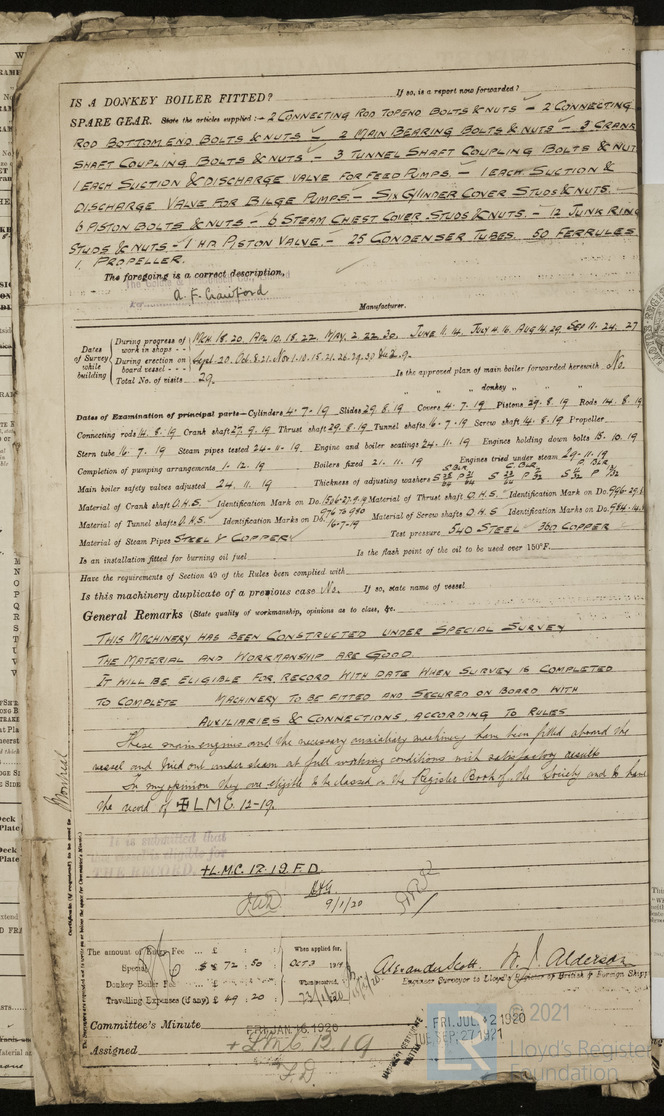 IS A DONKEY BOILER FITTED? If so, is a report now forwarded?
SPARE GEAR. State the articles supplied:- 2 CONNECTING ROD TOPEND BOLTS & NUTS - 2 CONNECTING
ROD BOTTOM END BOLTS & NUTS - 2 MAIN BEARING BOLTS & NUTS - 3 CRANK
SHAFT COUPLING BOLTS & NUTS - 3 TUNNEL SHAFT COUPLING BOLTS & NUT
1 EACH SUCTION & DISCHARGE VALVE FOR FEED PUMPS. - 1 EACH SUCTION &
DISCHARGE VALVE FOR BILGE PUMPS - SIX CYLINDER COVER STUDS & NUTS. -
6 PISTON BOLTS & NUTS - 6 STEAM CHEST COVER STUDS & NUTS. - 12 JUNK RING
STUDS & NUTS - 1 H.P. PISTON VALVE. - 25 CONDENSER TUBES. 50 FERRULES
1. PROPELLER.
The foregoing is a correct description,
A. F. Crawford
Manufacturer.
Dates of Survey while building
During progress of work in shops - - MCH. 18. 20. APL 10. 18. 22. MAY. 2. 22. 30. JUNE 11. 14. JULY 4. 16. AUG 14. 29. SEP 11. 24. 27
During erection on board vessel - - - Sept. 20. Oct. 8. 21. Nov 1. 10. 15. 21. 26. 29. 30 Dec 2. 9.
Total No. of visits 29. Is the approved plan of main boiler forwarded herewith No.
" " donkey " "
Dates of Examination of principal parts—Cylinders 4. 7. 19 Slides 29. 8. 19 Covers 4. 7. 19 Pistons 29. 8. 19 Rods 14. 8. 19
Connecting rods 14. 8. 19 Crank shaft 27. 9. 19 Thrust shaft 29. 8. 19 Tunnel shafts 16. 7. 19 Screw shaft 14. 8. 19 Propeller
Stern tube 16. 7. 19 Steam pipes tested 24. 11. 19 Engine and boiler seatings 24. 11. 19 Engines holding down bolts 15. 10. 19
Completion of pumping arrangements 1. 12. 19 Boilers fixed 21. 11. 19 Engines tried under steam 29. 11. 19
Main boiler safety valves adjusted 24. 11. 19 Thickness of adjusting washers
Material of Crank shaft O.H.S. Identification Mark on Do. Material of Thrust shaft O.H.S. Identification Mark on Do.
Material of Tunnel shafts O.H.S. Identification Marks on Do. 976 TO 980 16-7-19 Material of Screw shafts O.H.S Identification Marks on Do.
Material of Steam Pipes STEEL & COPPER Test pressure 540 STEEL 360 COPPER
Is an installation fitted for burning oil fuel Is the flash point of the oil to be used over 150°F.
Have the requirements of Section 49 of the Rules been complied with
Is this machinery duplicate of a previous case No. If so, state name of vessel
General Remarks (State quality of workmanship, opinions as to class, &c.
THIS MACHINERY HAS BEEN CONSTRUCTED UNDER SPECIAL SURVEY
THE MATERIAL AND WORKMANSHIP ARE GOOD
IT WILL BE ELIGIBLE FOR RECORD WITH DATE WHEN SURVEY IS COMPLETED
TO COMPLETE MACHINERY TO BE FITTED AND SECURED ON BOARD WITH
AUXILIARIES & CONNECTIONS, ACCORDING TO RULES
These main engines and the necessary auxiliary machinery have been fitted aboard the
vessel and tried out under steam at full working conditions with satisfactory results
In my opinion they are eligible to be classed in the Register Book of the Society and to have
the record of ✠ L.M.C. 12-19.
Montreal
It is submitted that
this vessel is eligible for
THE RECORD. + L.M.C. 12.19. F.D.
9/1/20
The amount of Entry Fee ... £
Special $ 72 : 50
Donkey Boiler Fee £
Travelling Expenses (if any) £ 49 : 20
When applied for,
OCT 3 1919
When received,
Alexander Scott. W. J. Alderson
Engineer Surveyor to Lloyd's Register of British & Foreign Shipp
Committee's Minute FRI. JAN 16. 1920
FRI. JUL. 2 1920
TUE. SEP. 27 1921
Assigned + LMC 12.19
F.D.
© 2021
LR
Lloyd's Register
Foundation